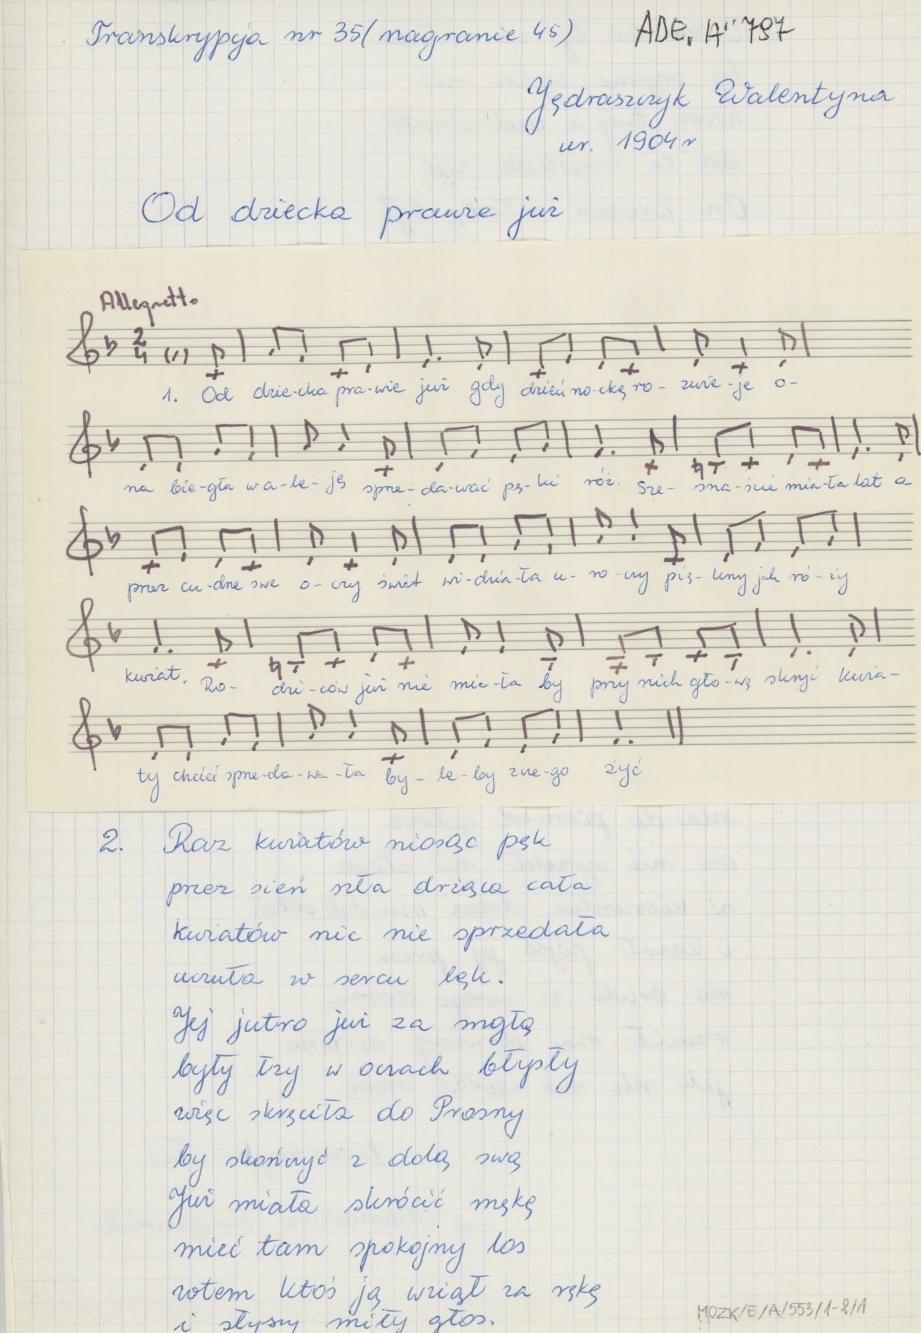 Transkrypcja nr 35 (nagranie 45) ADE, "A" 797
Jędraszczyk Walentyna
ur. 1904 r
Od dziecka prawie już
Allegretto
2
4
1. Od dzie-cka pra-wie już gdy dzień no-cką ro- zwie-je o-
na bie-gła w a-le-ję sprze-da-wać pę-ki róż. Sze- sna-ście mia-ła lat a
przez cu-dne swe o-czy świat wi-dzia-ła u-ro-czy pię-kny jak ró-ży
kwiat. Ro- dzi-ców już nie mie-ła by przy nich gło-wę skryć kwia-
ty chcieć sprze-da-wa-ła by-le-by z ne-go żyć
2. Raz kwiatów niosąc pęk
przez sień szła drżąca cała
kwiatów nic nie sprzedała
uczuła w sercu lęk.
Jej jutro już za mgłą
były łzy w oczach błysły
więc skręciła do Prosny
by skończyć z dolą swą
Już miała skrócić mękę
mieć tam spokojny los
wtem ktoś ją wziął za rękę
i słyszy miły głos.
MOZK/E/A/553/1-2/1